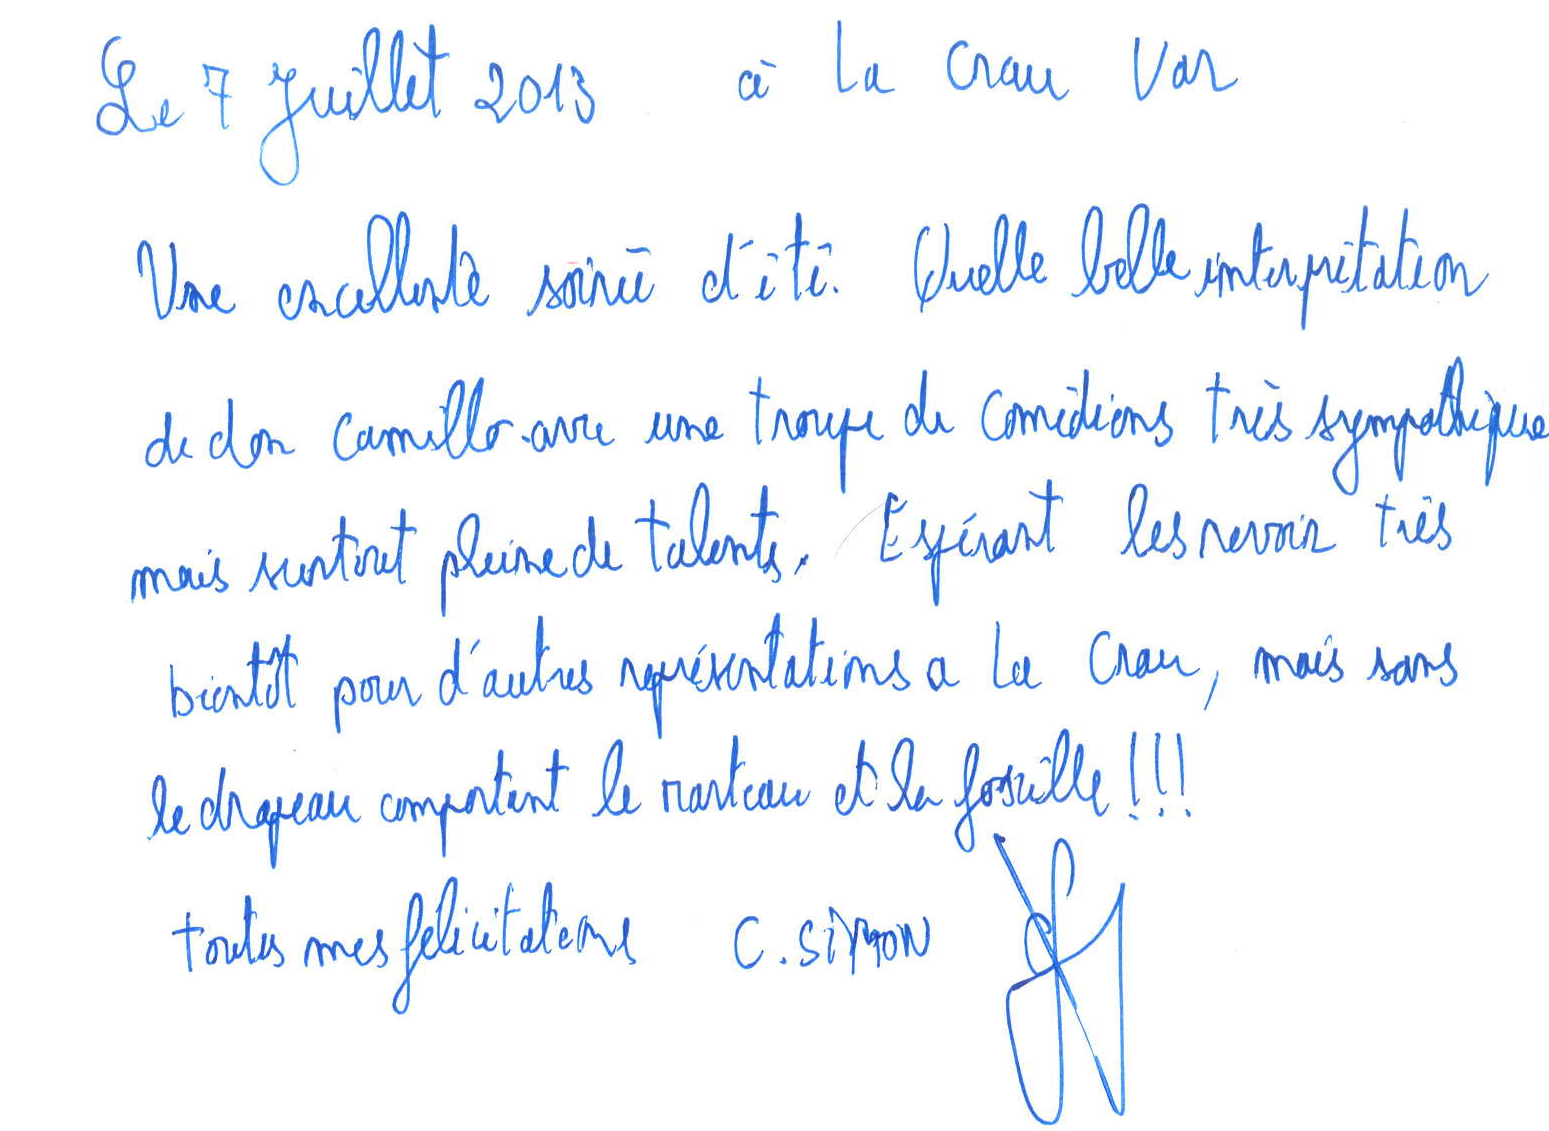 Le 7 Juillet 2013 à La Crau Var
Une excellente soirée d'été. Quelle belle interprétation
de don Camillo avec une troupe de comédiens très sympathique
mais surtout pleine de talents. Espérant les revoir très
bientôt pour d'autres représentations a La Crau, mais sans
le drapeau comportant le marteau et la faucille !!!
toutes mes félicitations C. SIMON